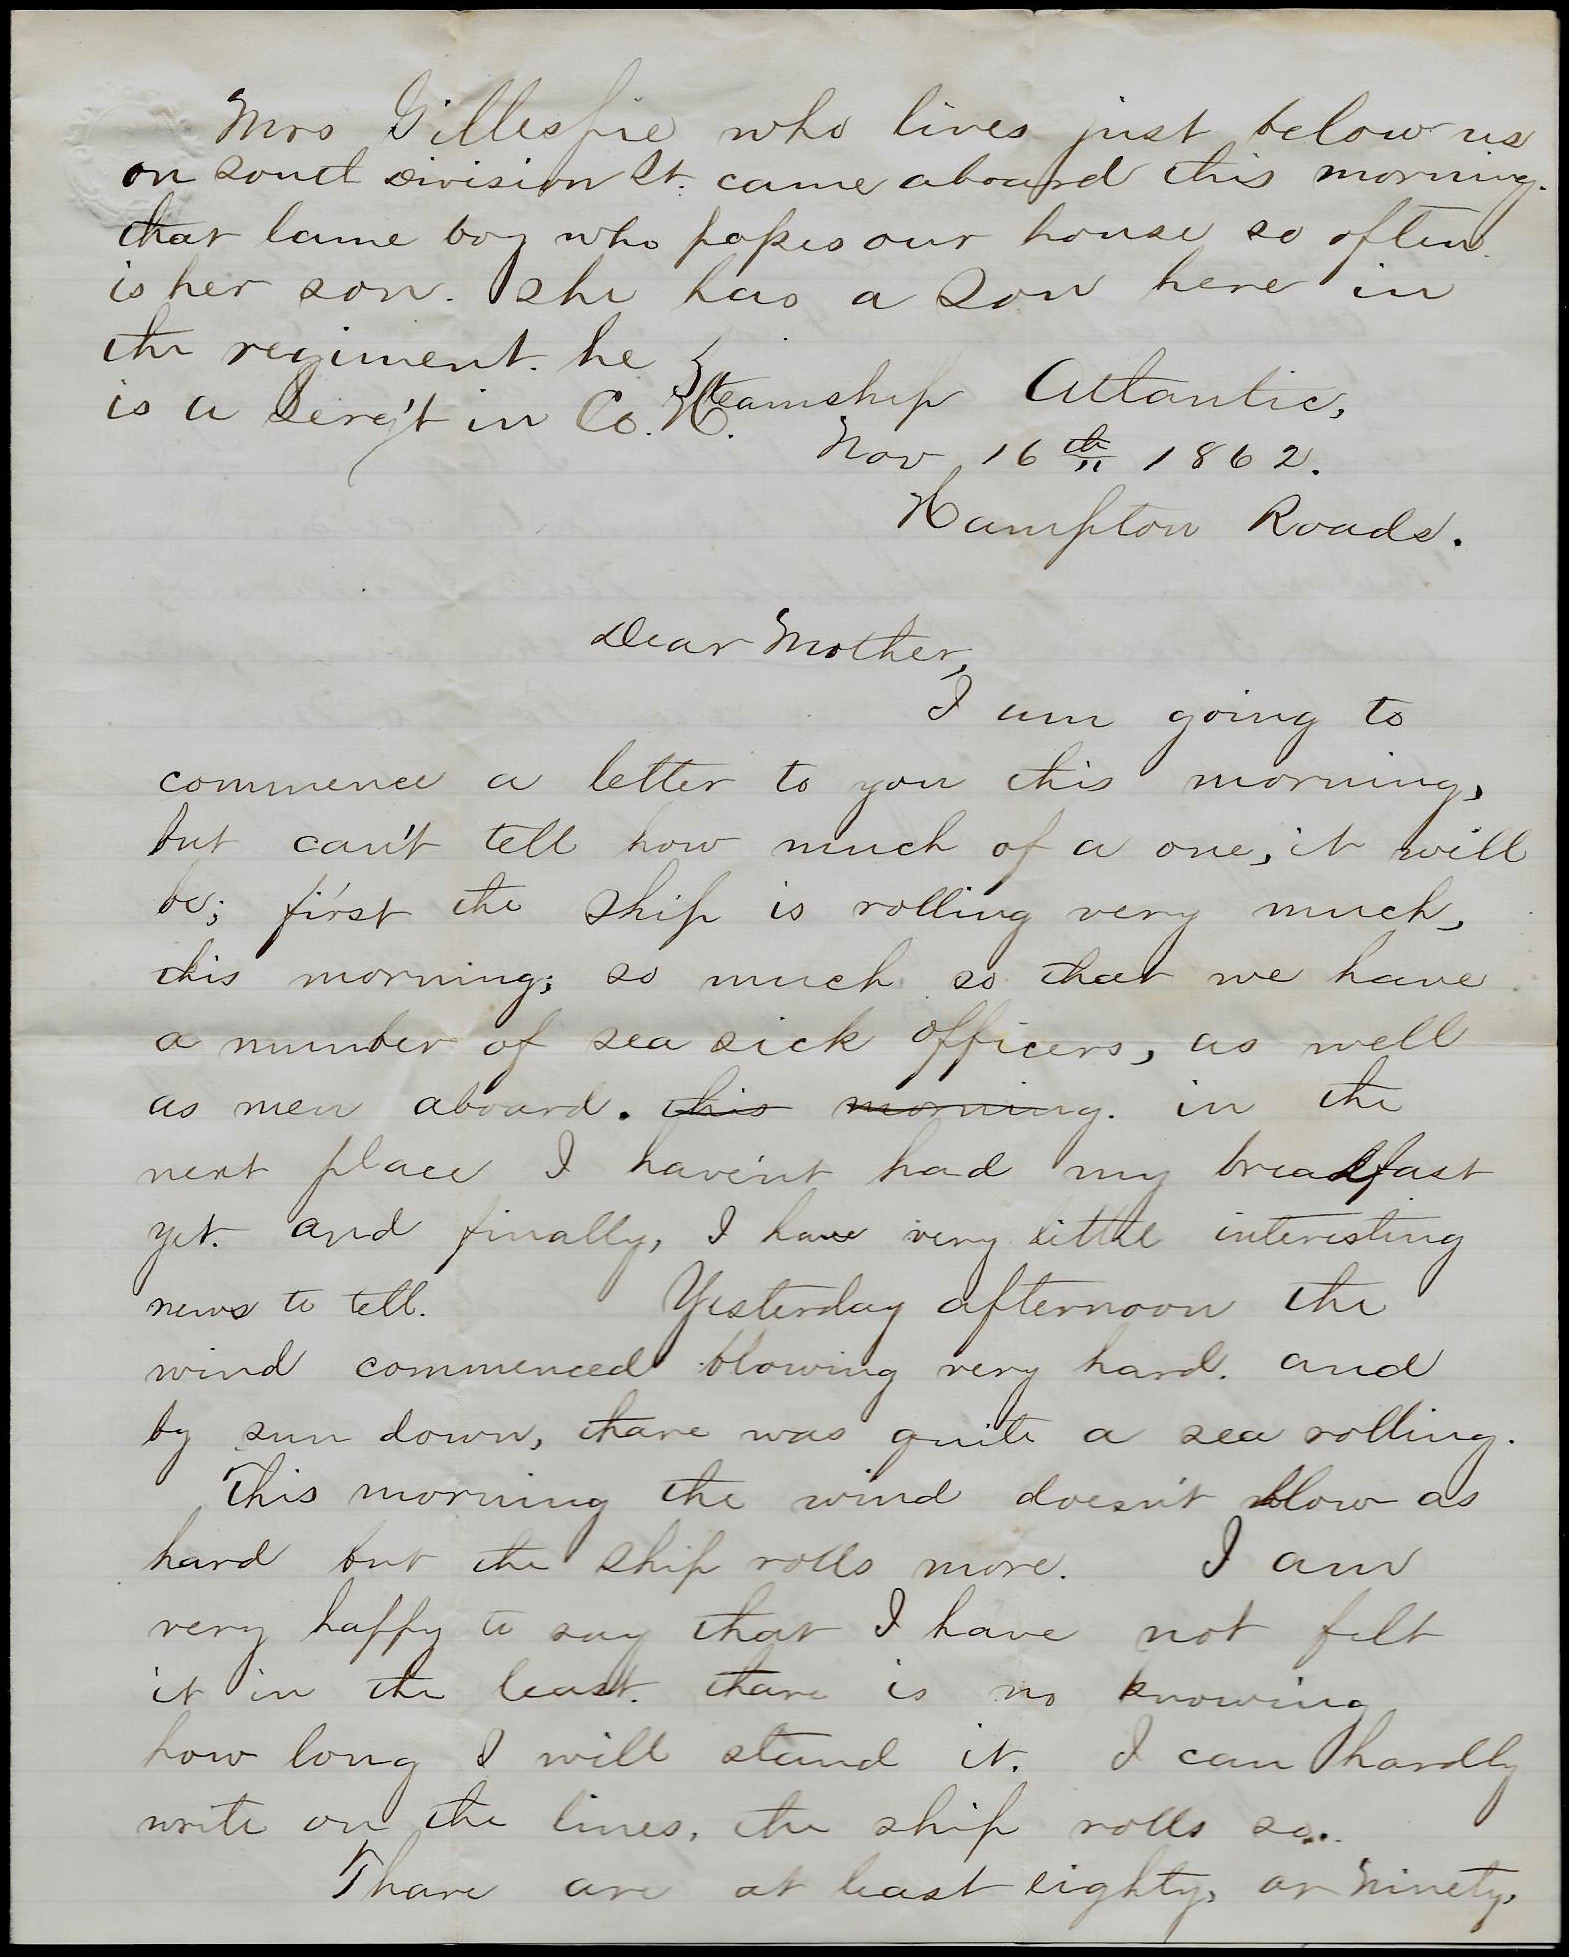 Mrs Gillespie who lives just below us
on south division St. came aboard this morning.
that lame boy who passes our house so often
is her son. She has a son here in
the regiment. he
is a Serg't in Co. H.
Steamship Atlantic,
Nov 16th 1862.
Hampton Roads.
Dear Mother,
I am going to
commence a letter to you this morning,
but can't tell how much of a one, it will
be; first the ship is rolling very much,
this morning; so much so that we have
a number of sea sick officers, as well
as men aboard. this morning. in the
next place I have'nt had my breakfast
yet. and finally, I have very little interesting
news to tell. Yesterday afternoon the
wind commenced blowing very hard. and
by sun down, thare was quite a sea rolling.
This morning the wind does'nt blow as
hard but the ship rolls more. I am
very happy to say that I have not felt
it in the least. thare is no knowing
how long I will stand it. I can hardly
write on the lines, the ship rolls so..
Thare are at least eighty, or ninety,